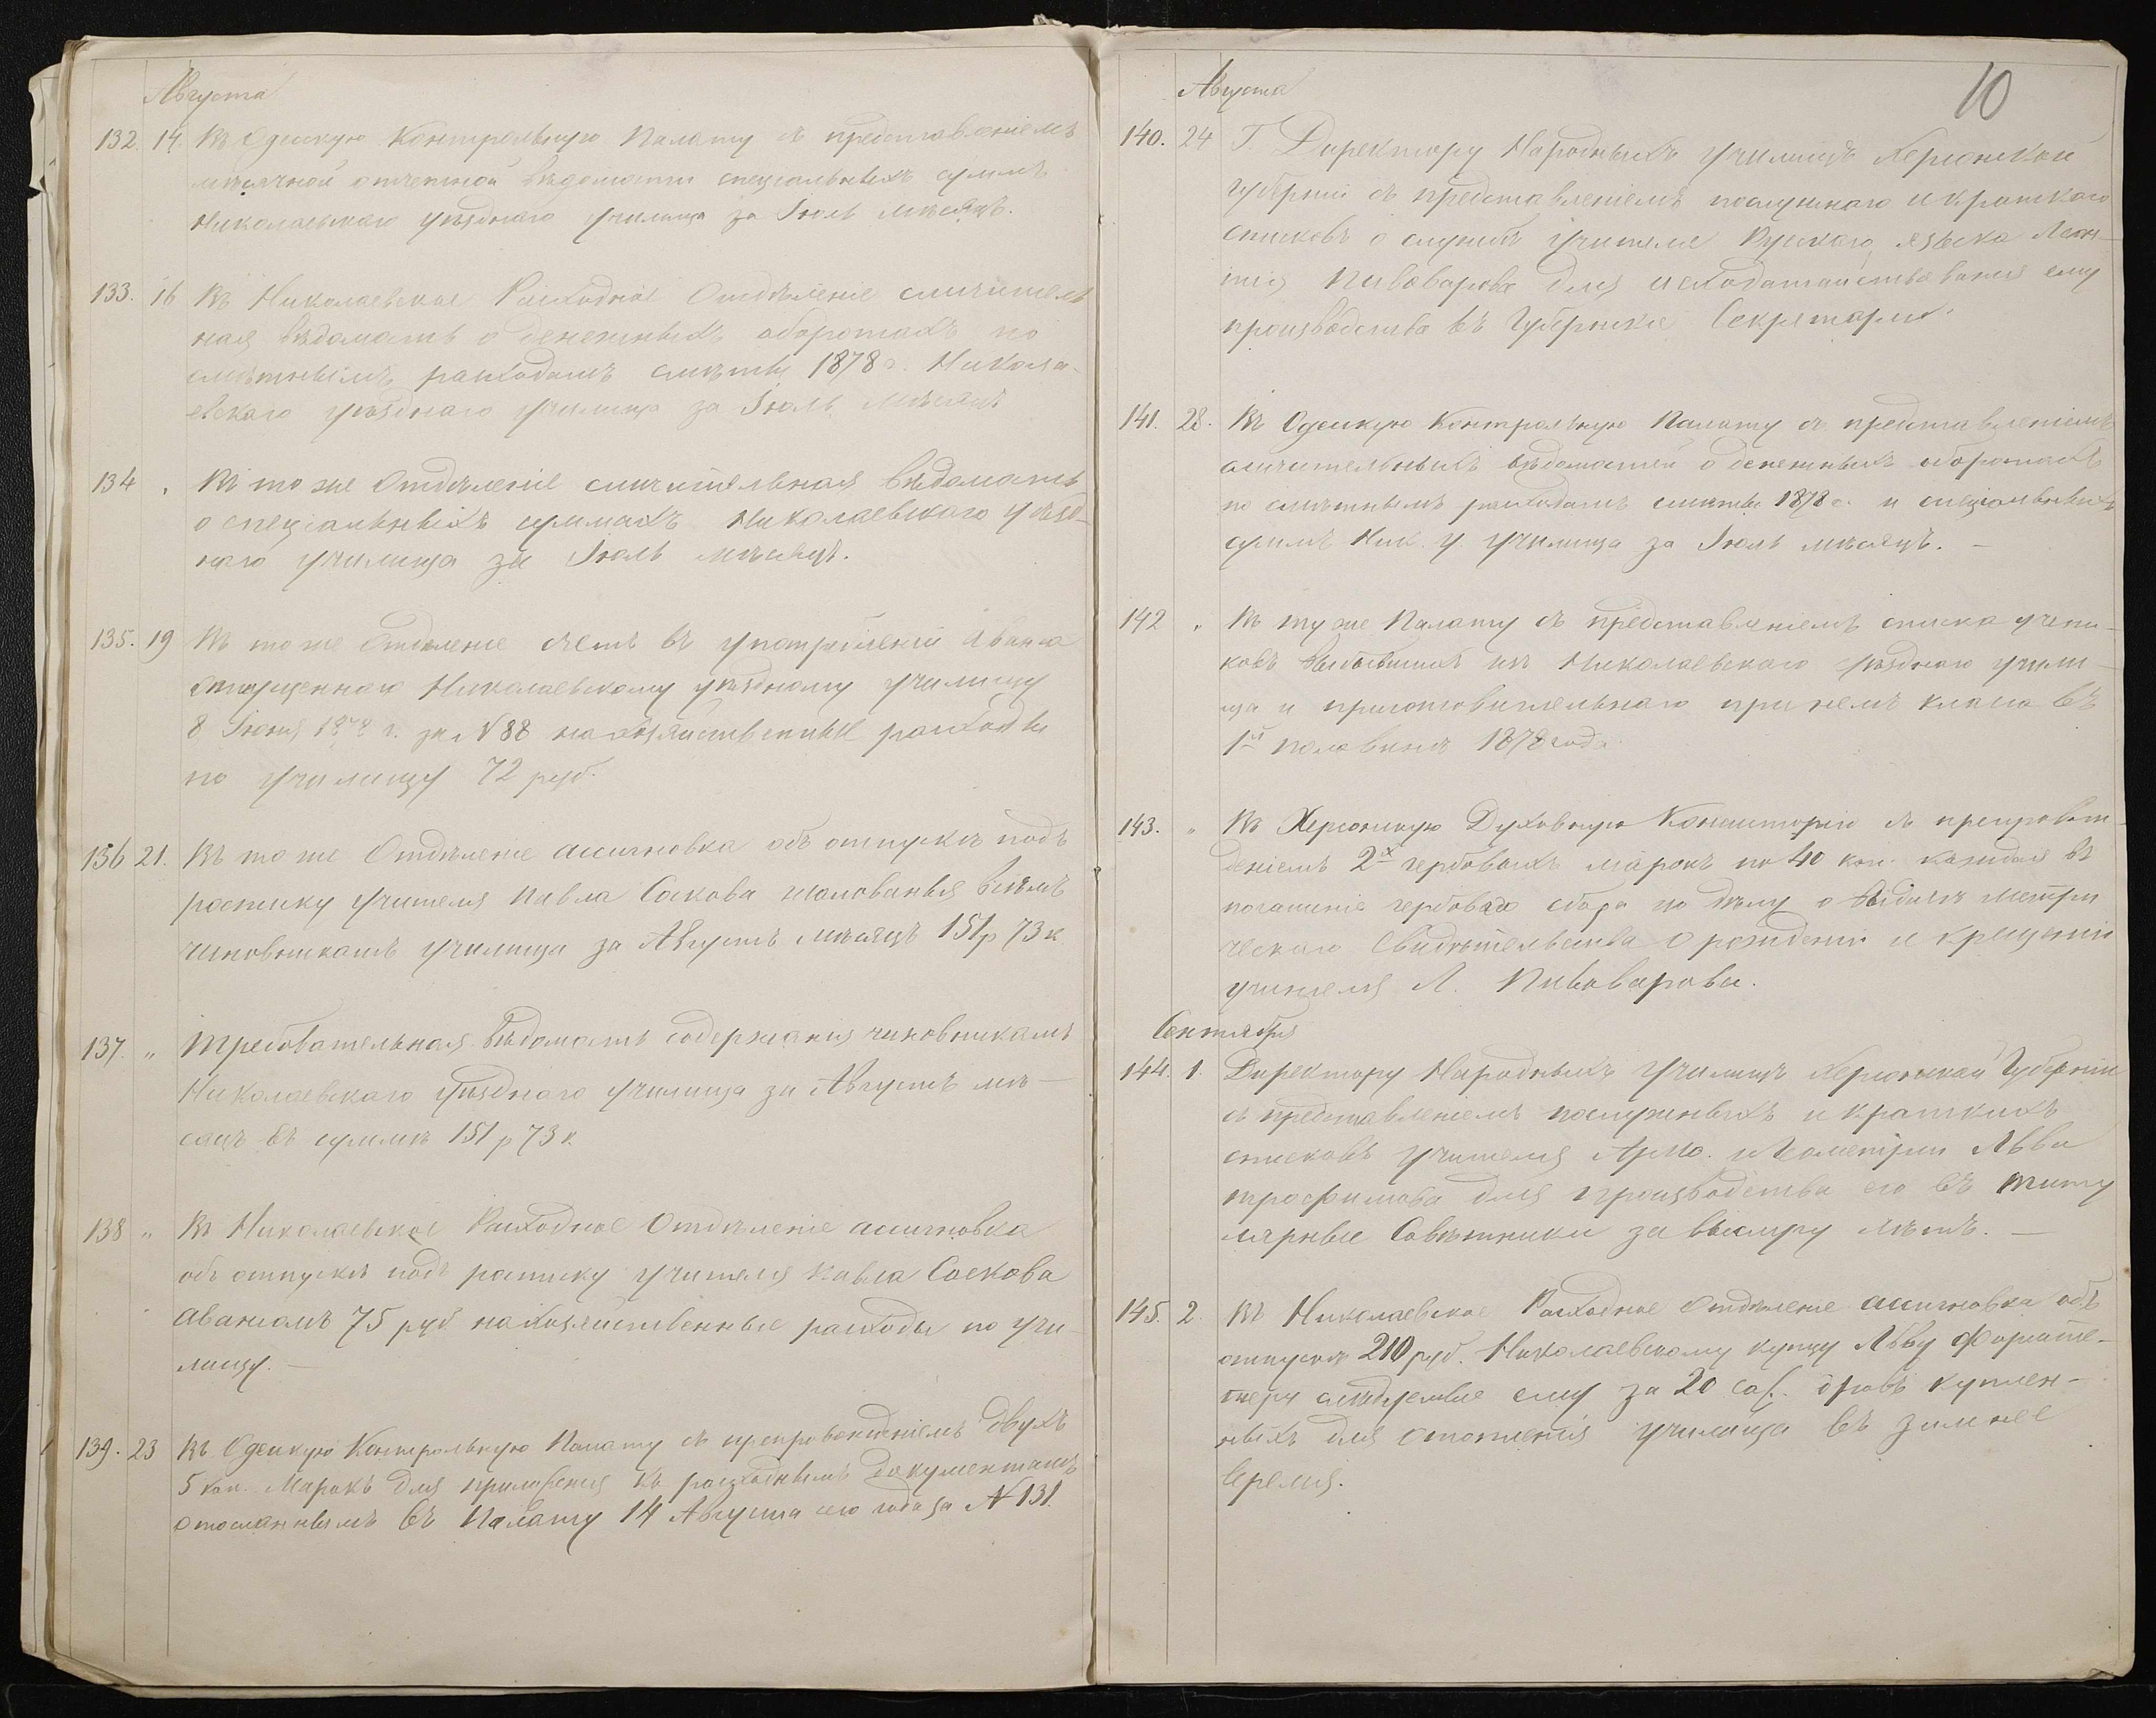 Августа
132. 14. Въ Одесскую Контрольную Палату съ представленіемъ
мѣсячной отчетной вѣдомости спеціальныхъ суммъ
Николаевскаго уѣзднаго училища за Іюль мѣсяцъ.
133. 16 Въ Николаевское Расходное Отдѣленіе сличитель
ная вѣдомость о денежныхъ оборотахъ по
смѣтнымъ расходамъ смѣты 1878 г. Никола-
евскаго уѣзднаго училища за Іюль мѣсяцъ
134 „ Въ то же Отдѣленіе сличительная вѣдомость
о спеціальныхъ суммахъ Николаевскаго уѣзд-
наго училища за Іюль мѣсяцъ.
135. 19 Въ то же Отдѣленіе счетъ въ употребленіи аванса
отпущеннаго Николаевскому уѣздному училищу
8 Іюня 1878 г. за № 88 на хозяйственные расходы
по училищу 72 руб.
136 21. Въ то же Отдѣленіе ассигновка объ отпускѣ подъ
росписку учителя Павла Соскова жалованья всѣмъ
чиновникамъ училища за Августъ мѣсяцъ 151 р 73 к
137. „ Требовательная вѣдомость содержанія чиновникамъ
Николаевскаго уѣзднаго училища за Августъ мѣ-
сяцъ въ суммѣ 151 р 73 к.
138 „ Въ Николаевское Расходное Отдѣленіе ассигновка
объ отпускѣ подъ росписку учителя Павла Соскова
авансомъ 75 руб на хозяйственные расходы по учи-
лищу. —
139. 23 Въ Одесскую Контрольную Палату съ препровожденіемъ двухъ
5 коп. Марокъ для приложенія къ расходнымъ документамъ
отосланнымъ въ Палату 14 Августа сего года за № 131.
10
Августа
140. 24 Г. Директору Народныхъ училищъ Херсонской
губерніи съ представленіемъ послужнаго и краткаго
списковъ о службѣ учителя Русскаго языка Леон-
тія Пивоварова для исходатайствованія ему
производства въ Губернскіе Секретари.
141. 28. Въ Одесскую Контрольную Палату съ представленіемъ
сличительныхъ вѣдомостей о денежныхъ оборотахъ
по смѣтнымъ расходамъ смѣты 1878 г. и спеціальныхъ
суммъ Ник. у. училища за Іюль мѣсяцъ. —
142 „ Въ ту же Палату съ представленіемъ списка учени-
ковъ выбывшихъ изъ Николаевскаго уѣзднаго учили-
ща и приготовительнаго при немъ класса въ
1й половинѣ 1878 года
143. „ Въ Херсонскую Духовную Консисторію съ препровож-
деніемъ 2х гербовыхъ марокъ по 40 коп. каждая въ
погашеніе гербоваго сбора по дѣлу о выдачѣ метри
ческаго свидѣтельства о рожденіи и крещеніи
учителя Л. Пивоварова.
Сентября
144. 1. Директору Народныхъ Училищъ Херсонской Губерніи
съ представленіемъ послужныхъ и краткихъ
списковъ учителя Арио. и Геометріи Льва
Трофимова для производства его въ титу
лярные Совѣтники за выслугу лѣтъ. —
145. 2. Въ Николаевское Расходное Отдѣленіе ассигновка объ
отпускѣ 210 руб. Николаевскому купцу Льву
слѣдуемые ему за 20 саж. дровъ куплен-
ныхъ для отопленія училища въ зимнее
время.